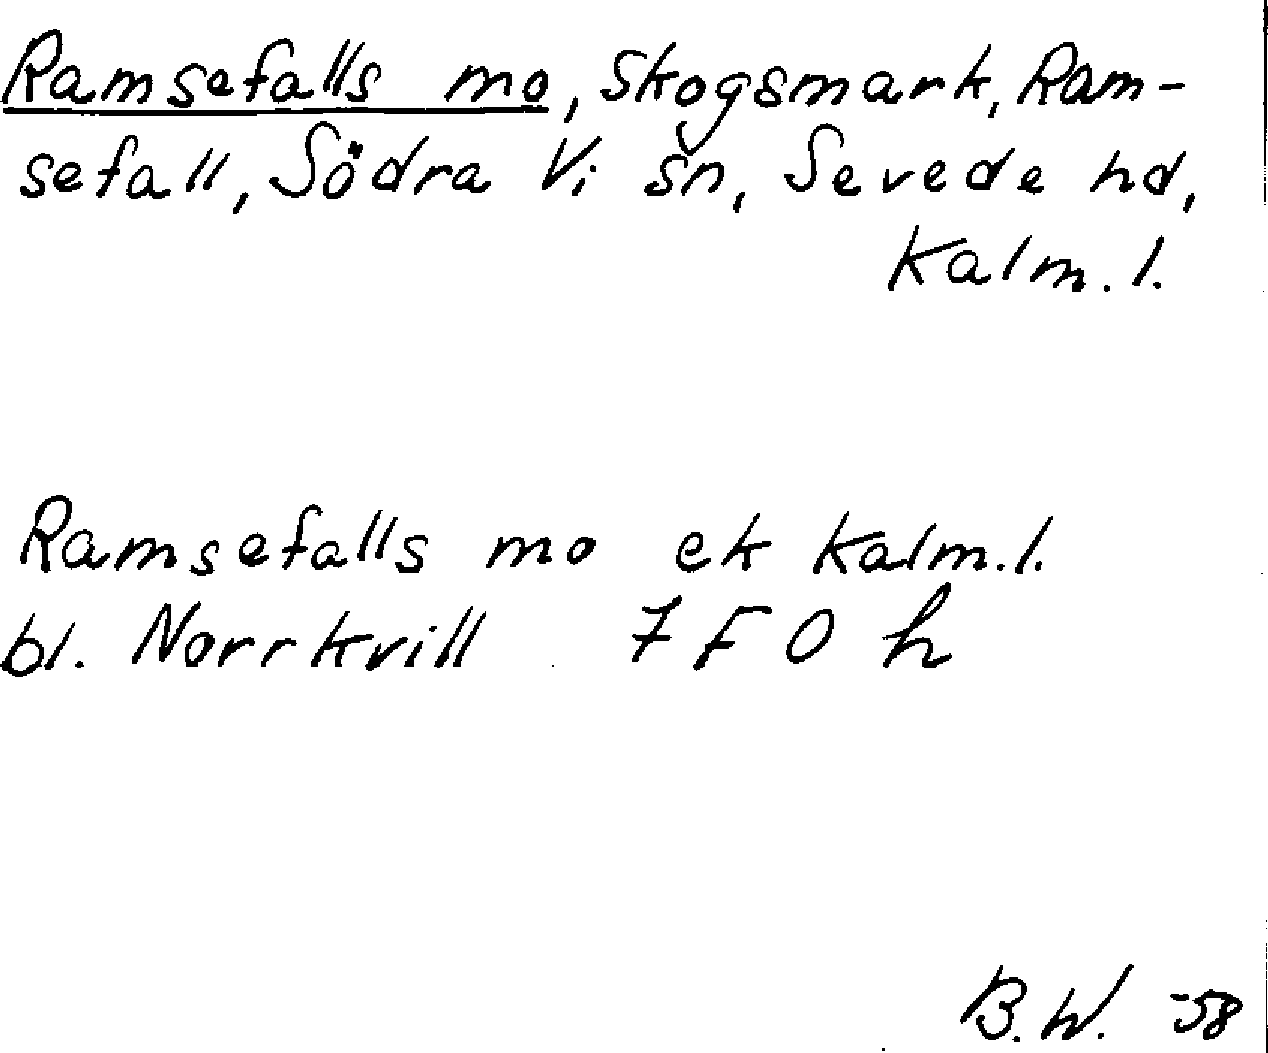 Ramsefalls mo, Skogsmark, Ram-
sefall, Södra Vi sn, Sevede hd,
Kalm. l.
Ramsefalls mo ek Kalm. l.
bl. Norrkvill 7 F 0 h
B.W. -58